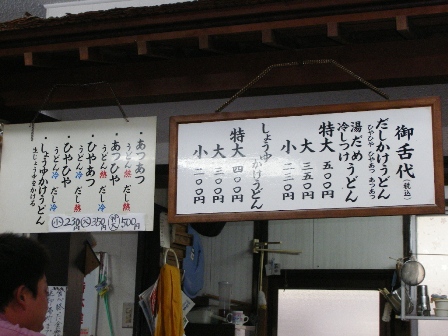 御舌代
(税込)
だしかけうどん
ひやひや ひやあつ あつあつ
湯だめうどん
冷しつけうどん
特大 五〇〇円
大 三五〇円
小 二三〇円
しょうゆかけうどん
特大 四〇〇円
大 三〇〇円
小 二〇〇円
・あつあつ
うどん熱 だし熱
・あつひや
うどん熱 だし冷
・ひやあつ
うどん冷 だし熱
・ひやひや
うどん冷 だし冷
・しょうゆかけうどん
生じょうゆをかける
小230円 大350円 特大500円